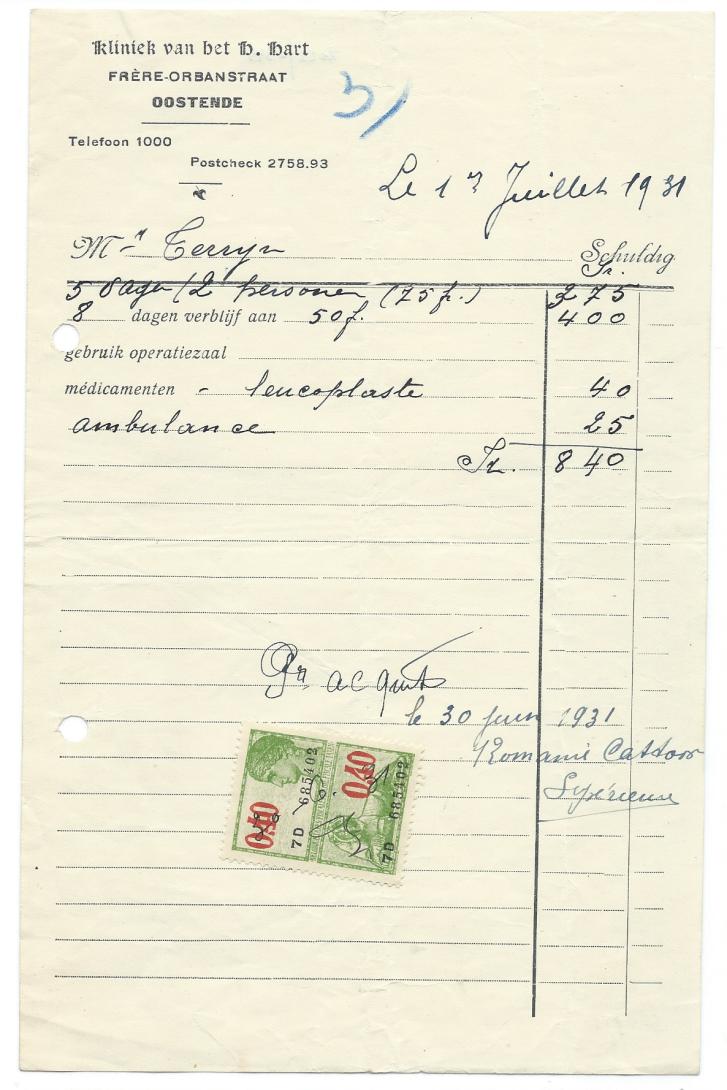 Kliniek van het H. Hart
FRÈRE-ORBANSTRAAT
OOSTENDE
Telefoon 1000
Postcheck 2758.93
Le 1er Juillet 1931
Mr Terryn Schuldig
Fr.
5 dagen / 2 personen (75 fr.) 275
8 dagen verblijf aan 50 f. 400
gebruik operatiezaal
médicamenten - leucoplaste 40
ambulance 25
Fr. 840
Pr acquit
le 30 juin 1931
Romanie Cattoor
Supérieure
0.40
7D 685402
0.40
7D 685402